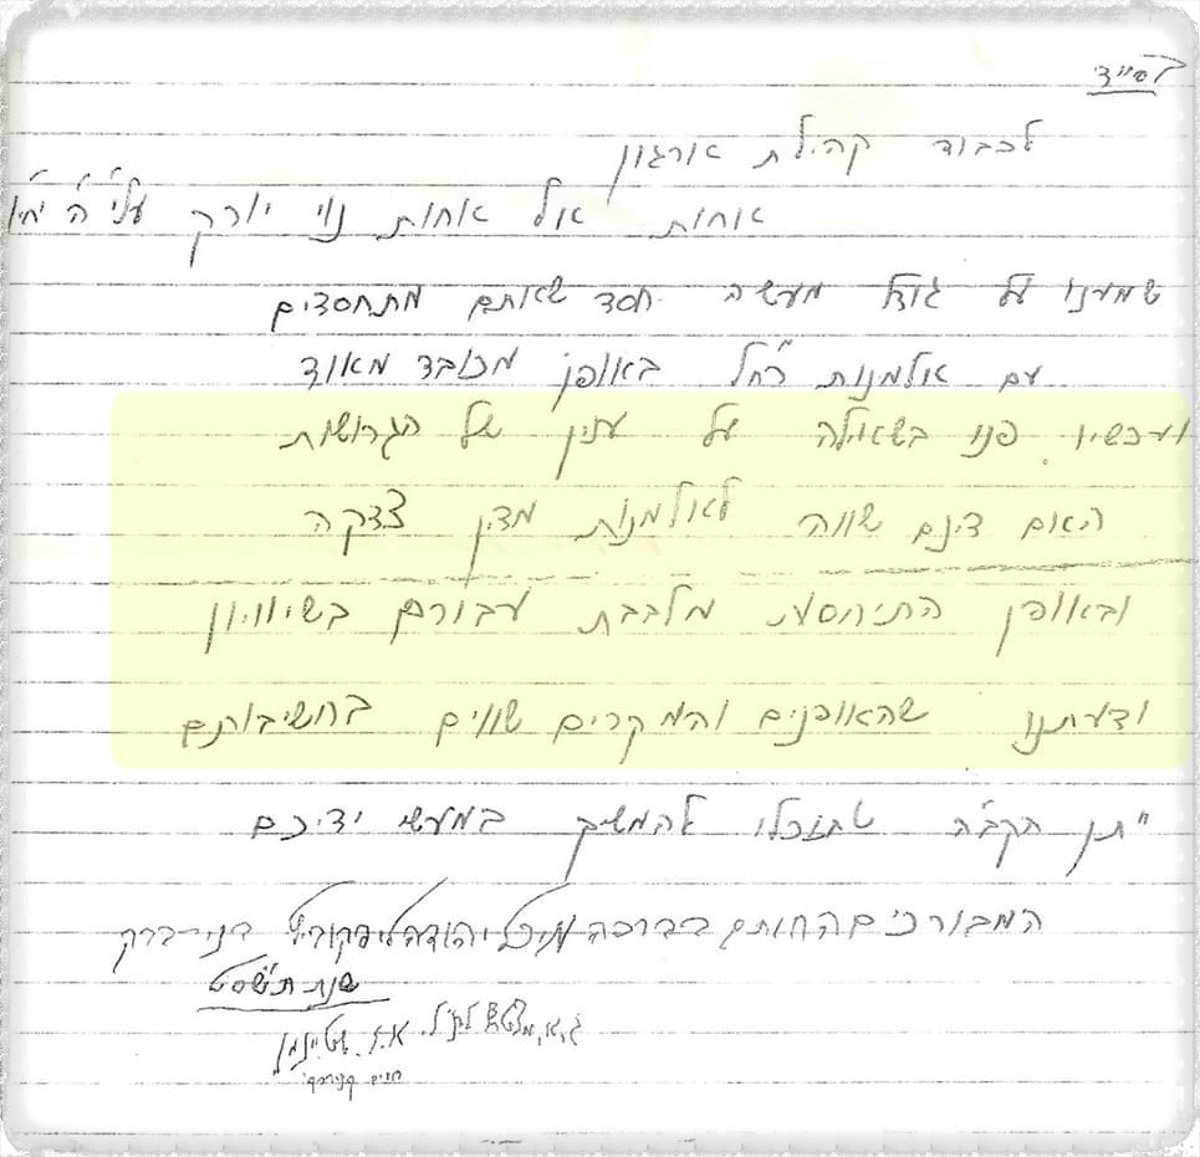 בסייד
לכבוד קהילת ארגון
אחות אל אחות נוי יורק עלי״ה
שמענו על גודל מעשה חסד שאתם מתחסדים
עם אלמנות רח״ל באופן מכובד מאוד
ועכשיו פנו בשאילה על ענין של הגרושות
האם דינם שווה לאלמנות מדין צדקה
ובאופן התיחסות מלבבת עבורם בשיוויון
ודעתנו שהאופנים והמקרים שווים בחשיבותם
יתן הקב״ה שתוכלו להמשיך במעשי ידיכם
המבורכים החותם בברכה מיכל יהודה ליפקוביץ בני-ברק
שנת תשס״ט
א.ל. שטיינמן
חיים קניבסקי